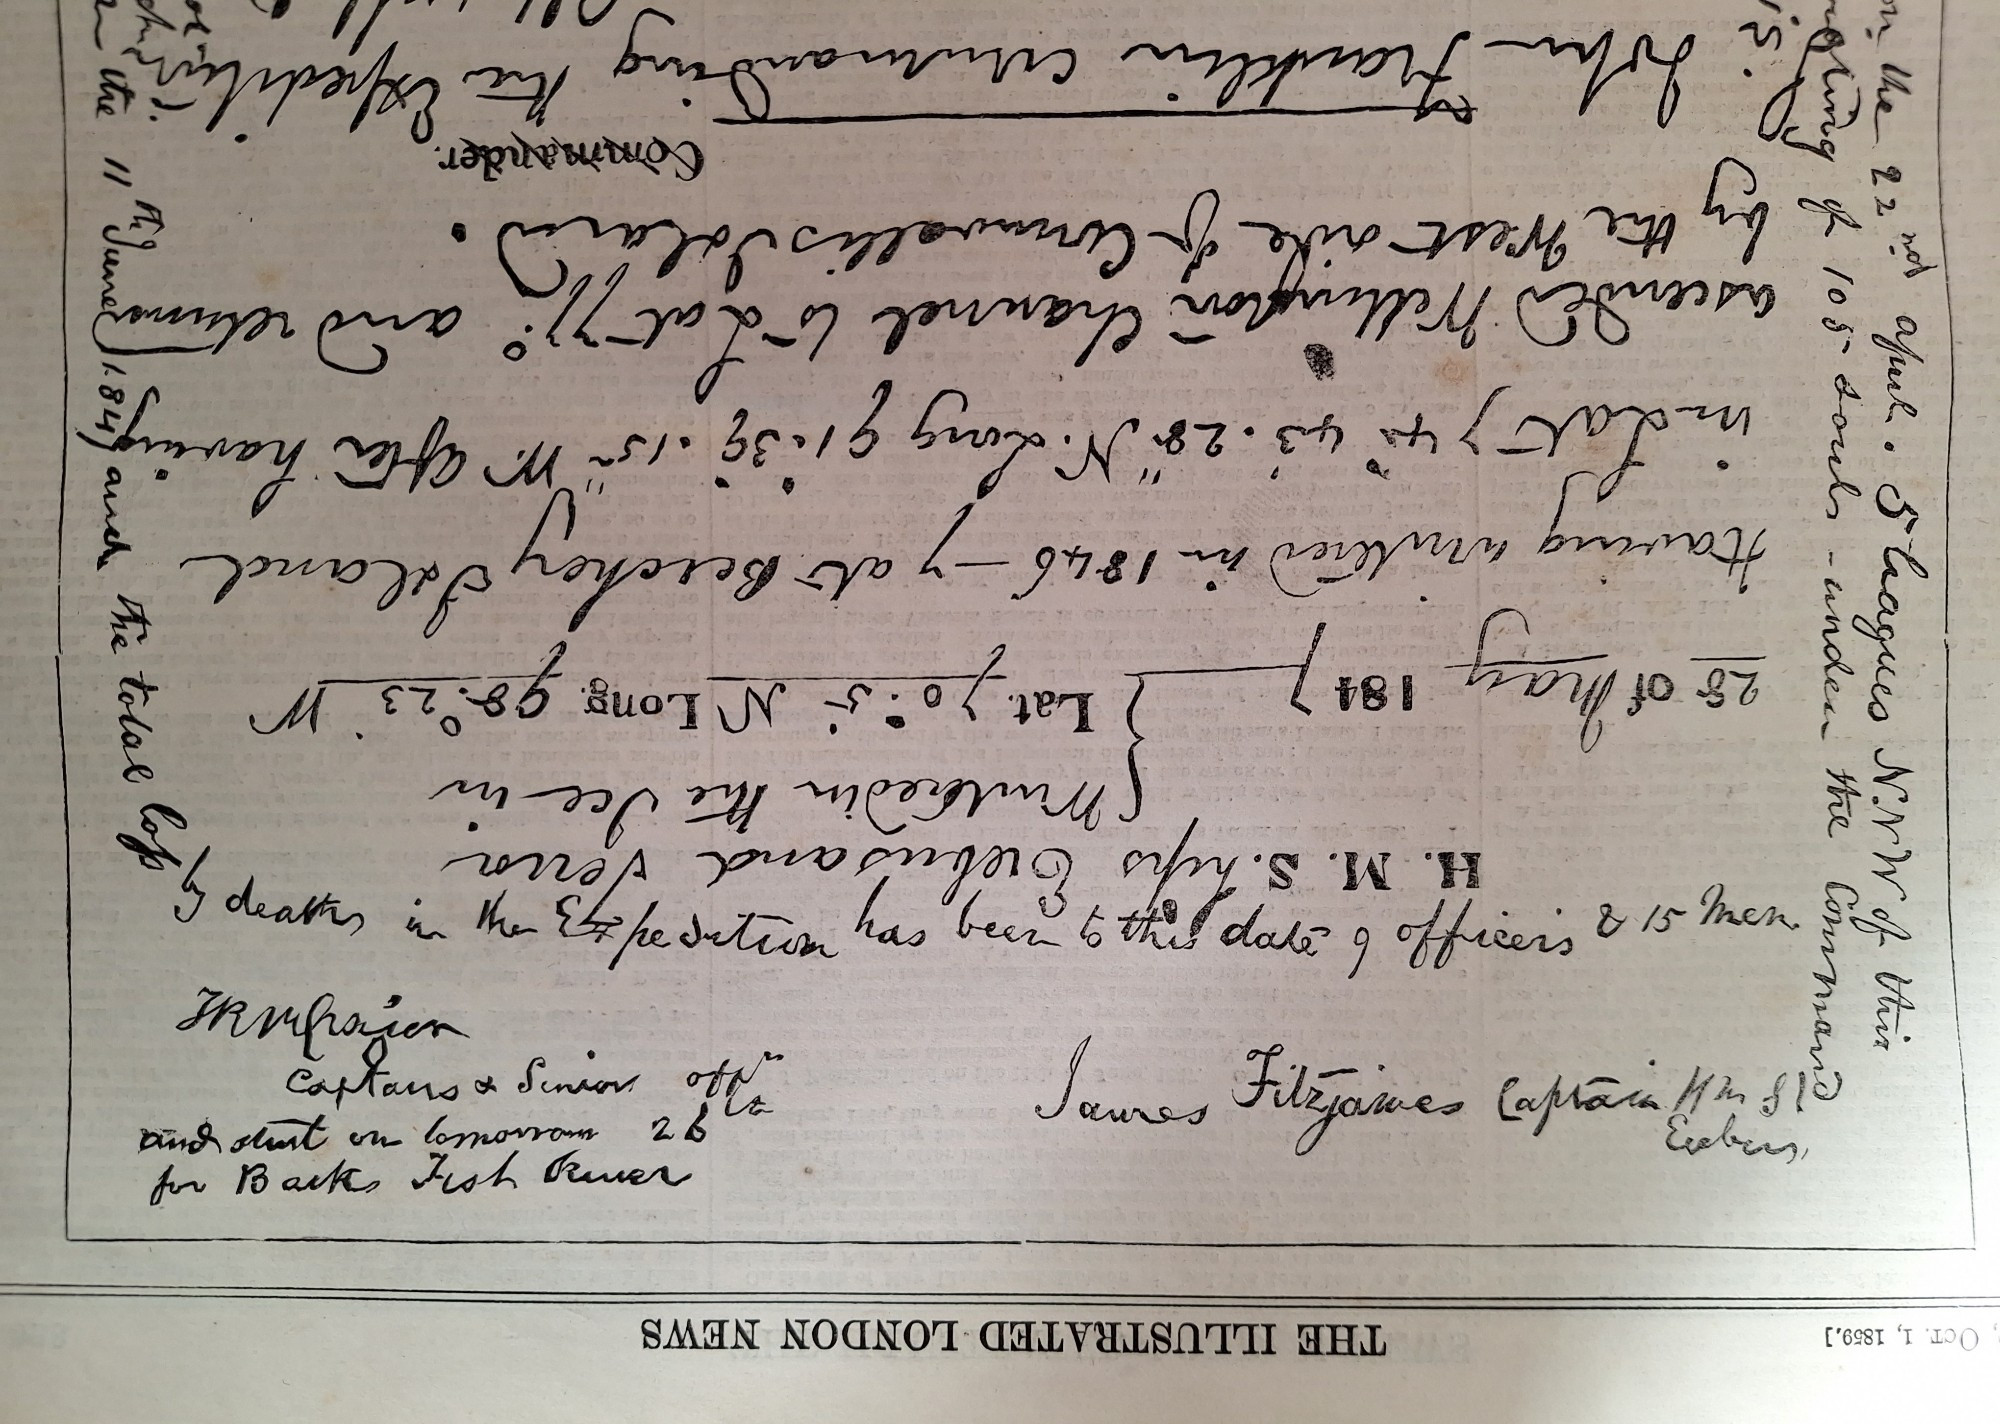 Oct. 1, 1859.]
THE ILLUSTRATED LONDON NEWS
H. M. S. hips Erebus and Terror
{ Wintered in the Ice in
28 of May 1847 { Lat. 70° 5' N Long. 98° 23' W
Having wintered in 1846-7 at Beechey Island
in Lat 74° 43' 28" N. Long 91° 39' 15" W. after having
ascended Wellington Channel to Lat 77° and returned
by the West side of Cornwallis Island.
Commander.
John Franklin commanding the Expedition.
on the 22nd April. 5 leagues N.N.W of this
of 105 souls under the Command
the 11th June 1847 and the total loss
by deaths in the Expedition has been to this date 6 officers & 15 Men.
James Fitzjames Captain HMS
Erebus
FRMCrozier
Captain & Senior Offr
and start on tomorrow 26th
for Backs Fish River